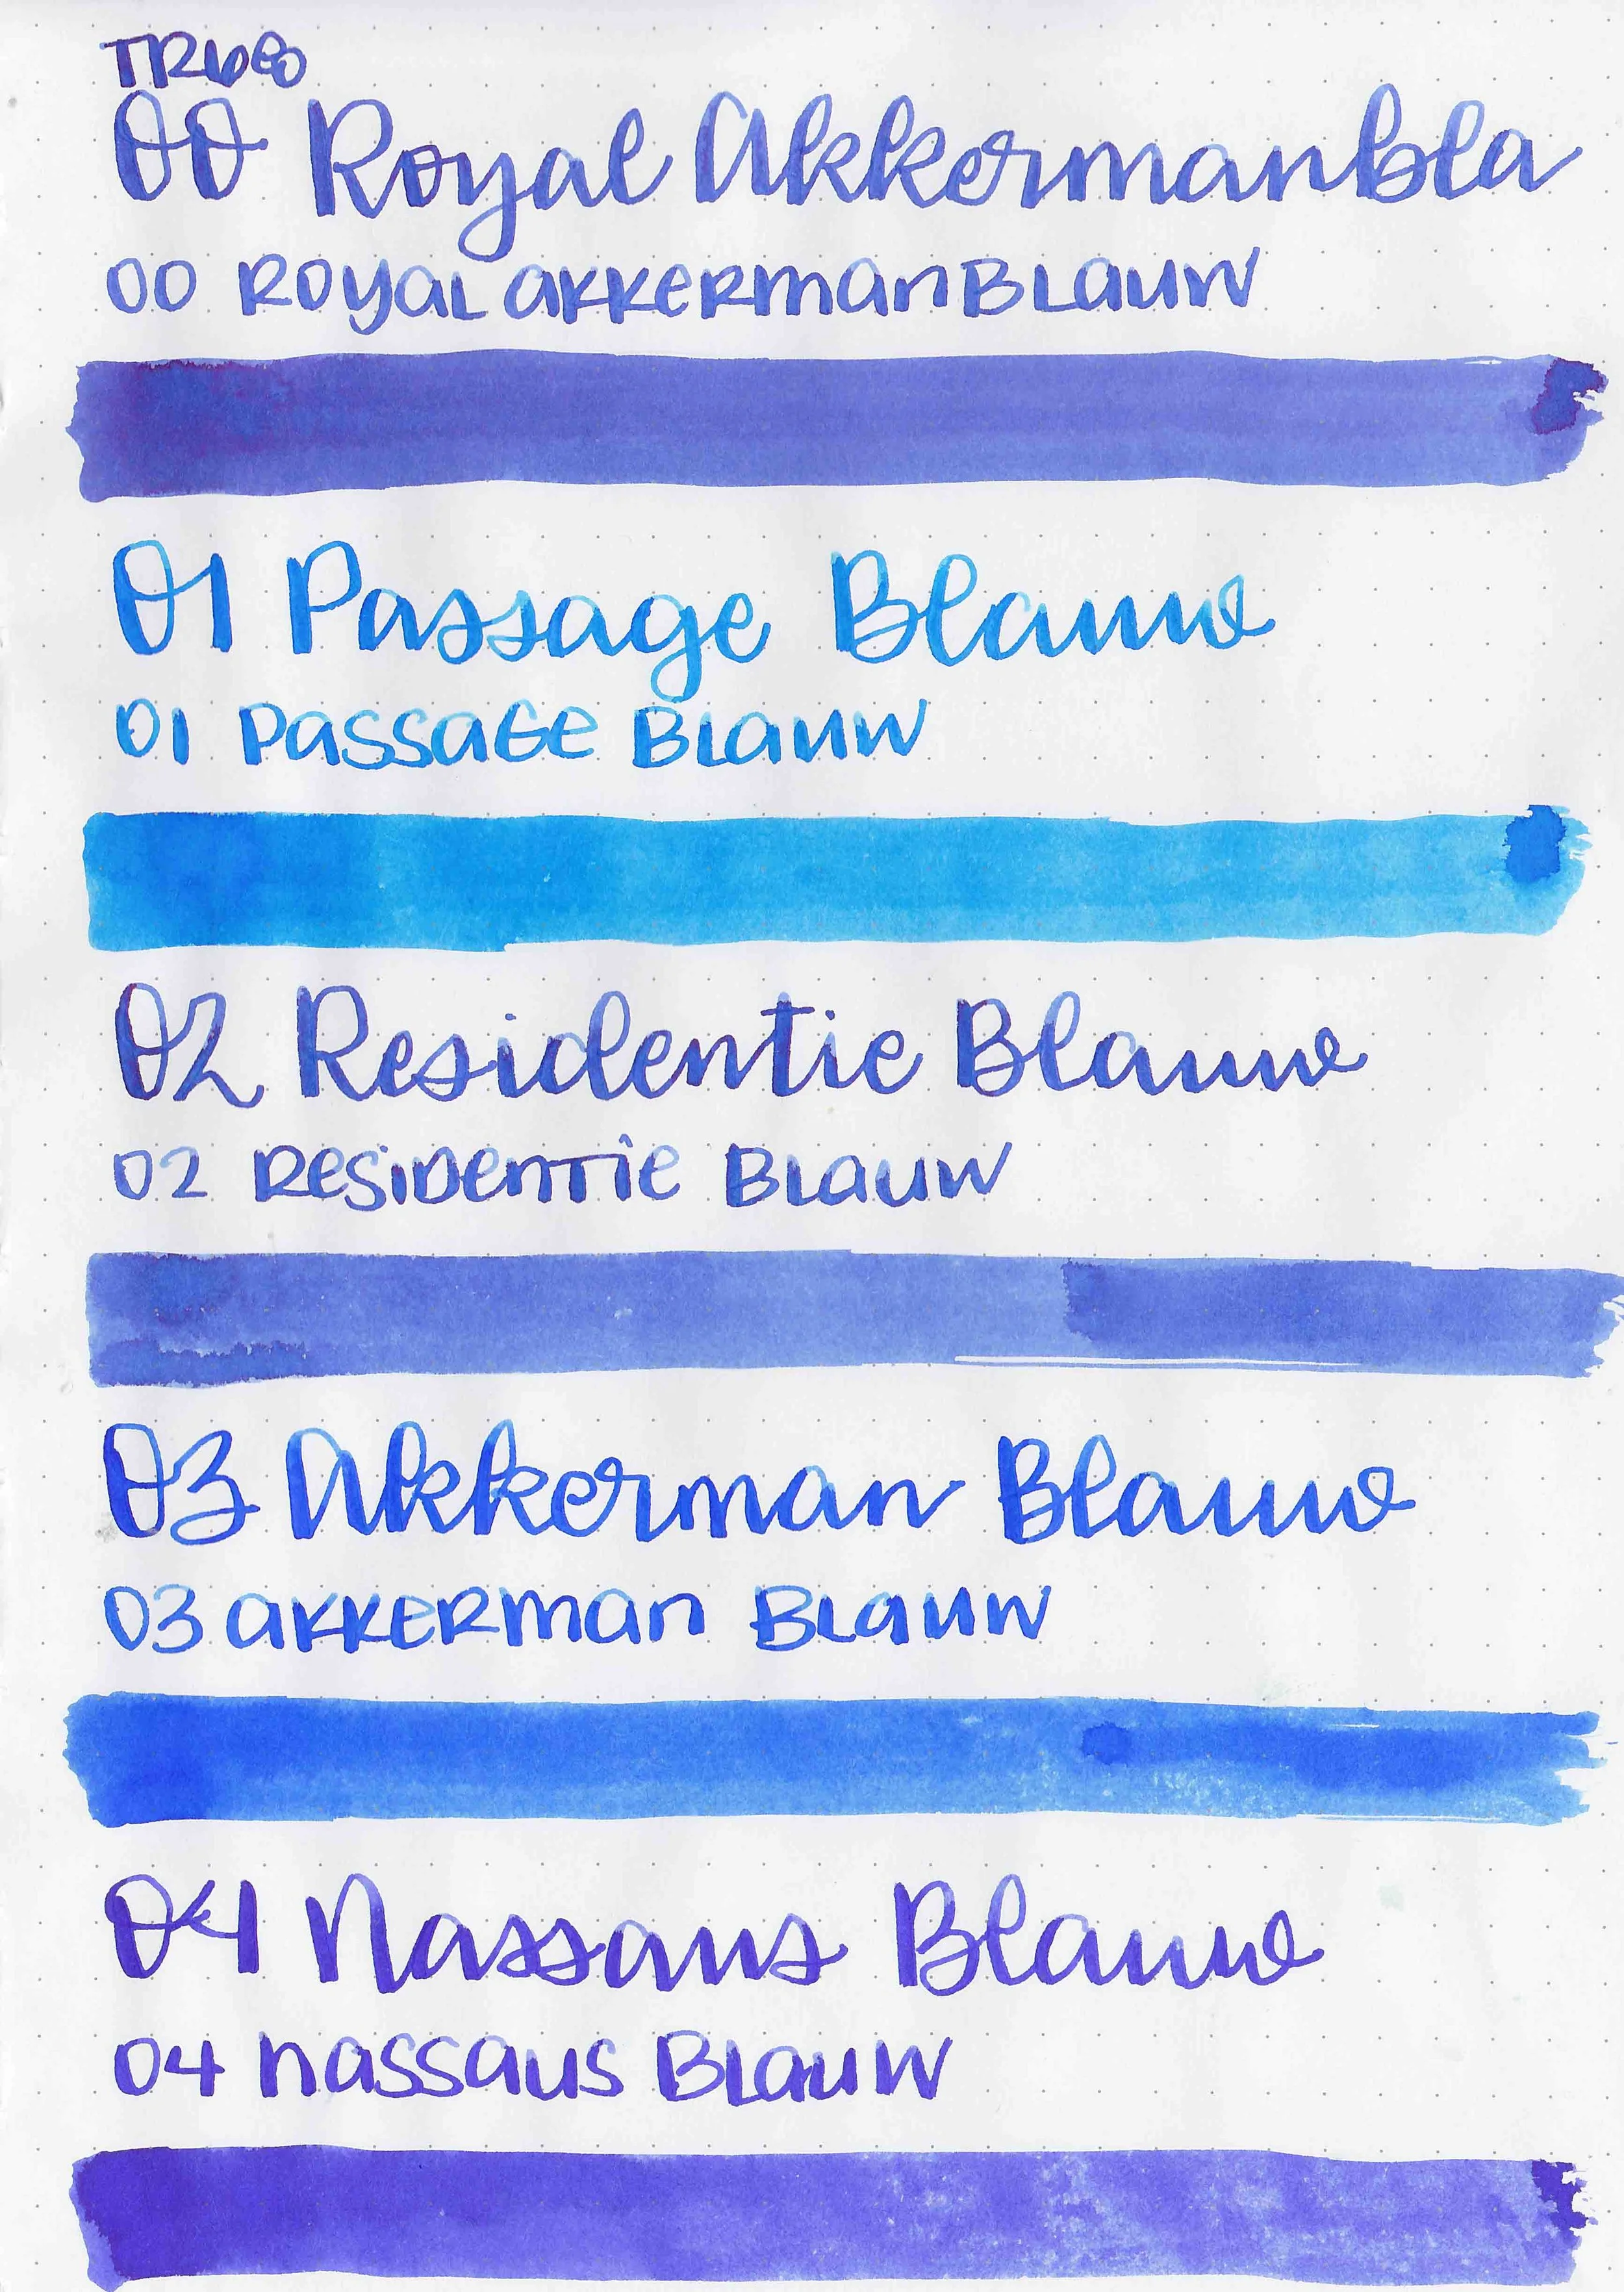 TR68
00 Royal Akkermanbla
00 Royal AkkermanBlauw
01 Passage Blauw
01 Passage Blauw
02 Residentie Blauw
02 Residentie Blauw
03 Akkerman Blauw
03 Akkerman Blauw
04 Nassaus Blauw
04 Nassaus Blauw